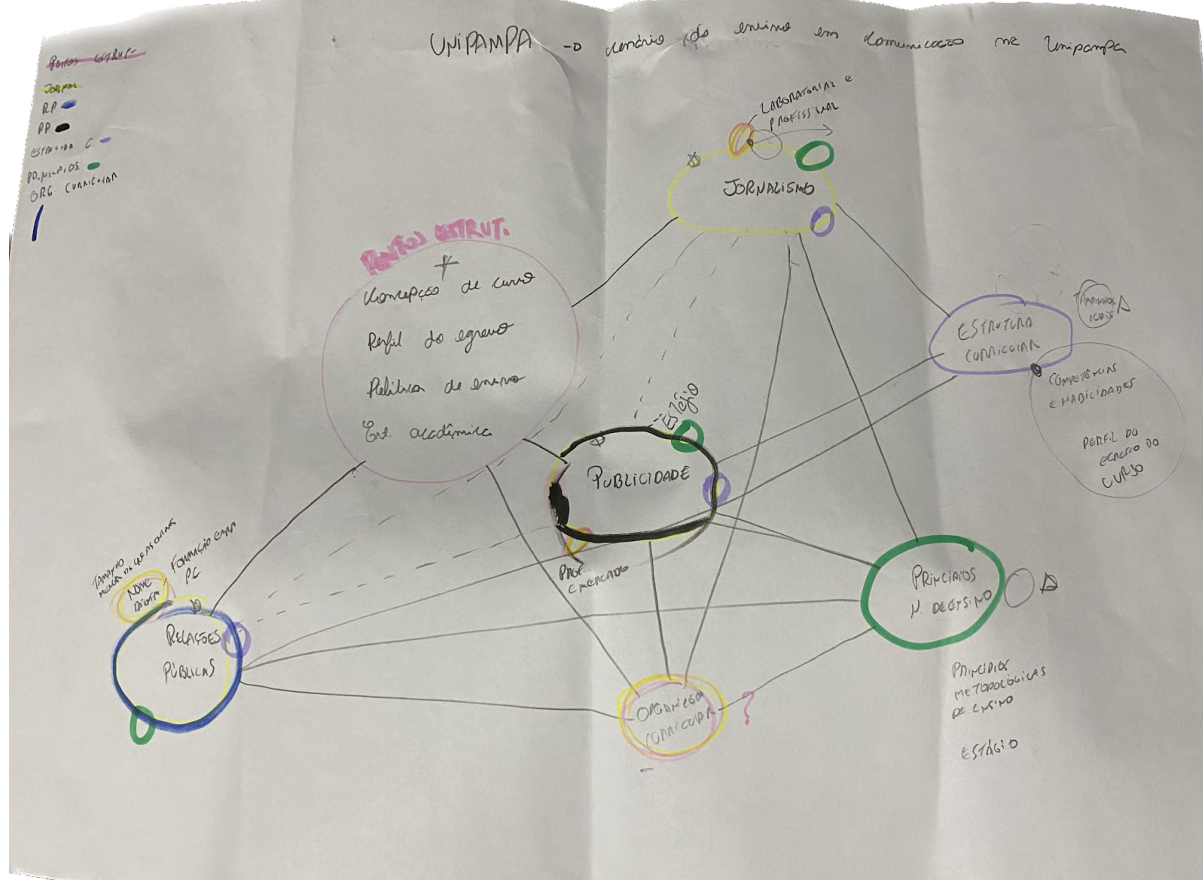 UNIPAMPA → cenário do ensino em comunicação na Unipampa
PONTOS ESTRUT.
JORNAL
RP
PP
ESTRUTURA C.
PRINCIPIOS
ORG CURRICULAR
LABORATORIAL E
PROFISSIONAL
JORNALISMO
PONTOS ESTRUT.
+
Concepção de curso
Perfil do egresso
Política de ensino
Est. acadêmica
ESTRUTURA
CURRICULAR
COMPETÊNCIAS
E HABILIDADES
PERFIL DO
EGRESSO DO
CURSO
ESTÁGIO
PUBLICIDADE
PROF.
E MERCADO
TAMANHO
FORMAÇÃO COM
PC
NOME
RELAÇÕES
PÚBLICAS
PRINCIPIOS
M. DE ENSINO
ORGANIZAÇÃO
CURRICULAR
?
PRINCIPIOS
METODOLÓGICOS
DE ENSINO
ESTÁGIO